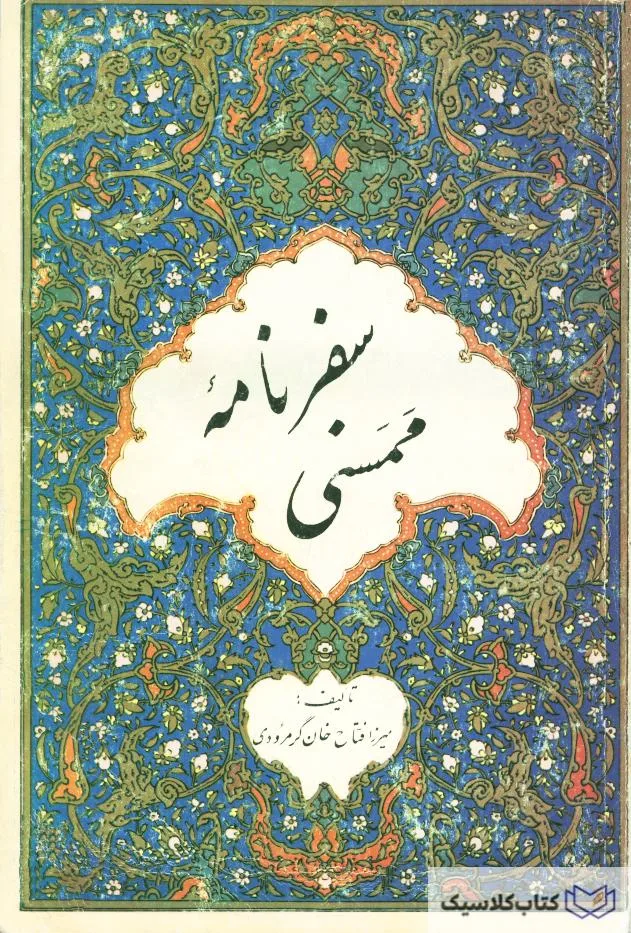 سفرنامهٔ
مَمَسَنی
تألیف :
میرزا فتاح خان گرمرودی
کتاب کلاسیک